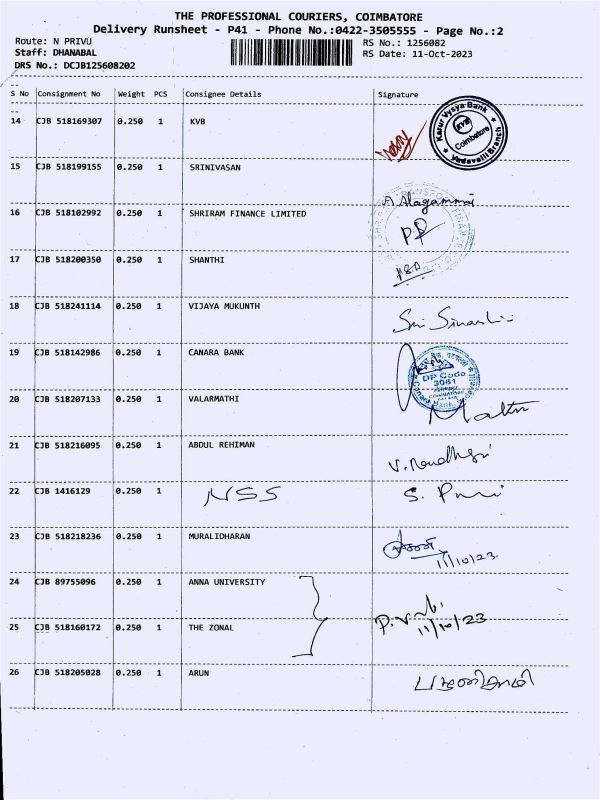 THE PROFESSIONAL COURIERS, COIMBATORE
Delivery Runsheet - P41 - Phone No.:0422-3505555 - Page No.:2
Route: N PRIVU RS No.: 1256082
Staff: DHANABAL RS Date: 11-Oct-2023
DRS No.: DCJB125608202
S No Consignment No Weight PCS Consignee Details Signature
14 CJB 518169307 0.250 1 KVB
Karur Vysya Bank
KVB
Coimbatore
Vadavalli Branch
15 CJB 518199155 0.250 1 SRINIVASAN
A Alagammai
16 CJB 518102992 0.250 1 SHRIRAM FINANCE LIMITED
17 CJB 518200350 0.250 1 SHANTHI
18 CJB 518241114 0.250 1 VIJAYA MUKUNTH
19 CJB 518142986 0.250 1 CANARA BANK
DP Code
3061
20 CJB 518207133 0.250 1 VALARMATHI
21 CJB 518216095 0.250 1 ABDUL REHIMAN
22 CJB 1416129 0.250 1 NSS
23 CJB 518218236 0.250 1 MURALIDHARAN
11/10/23.
24 CJB 89755096 0.250 1 ANNA UNIVERSITY
11/10/23
25 CJB 518160172 0.250 1 THE ZONAL
26 CJB 518205028 0.250 1 ARUN